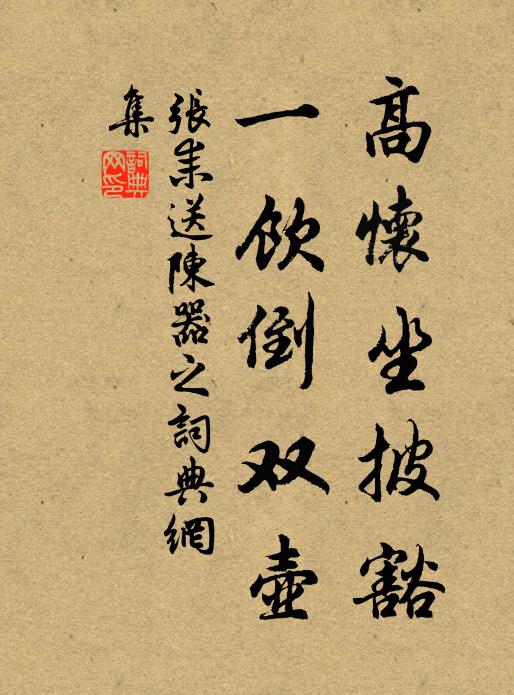 高懷坐披豁
一飲倒双壺
張耒送陳器之詞典網
集
詞典网印